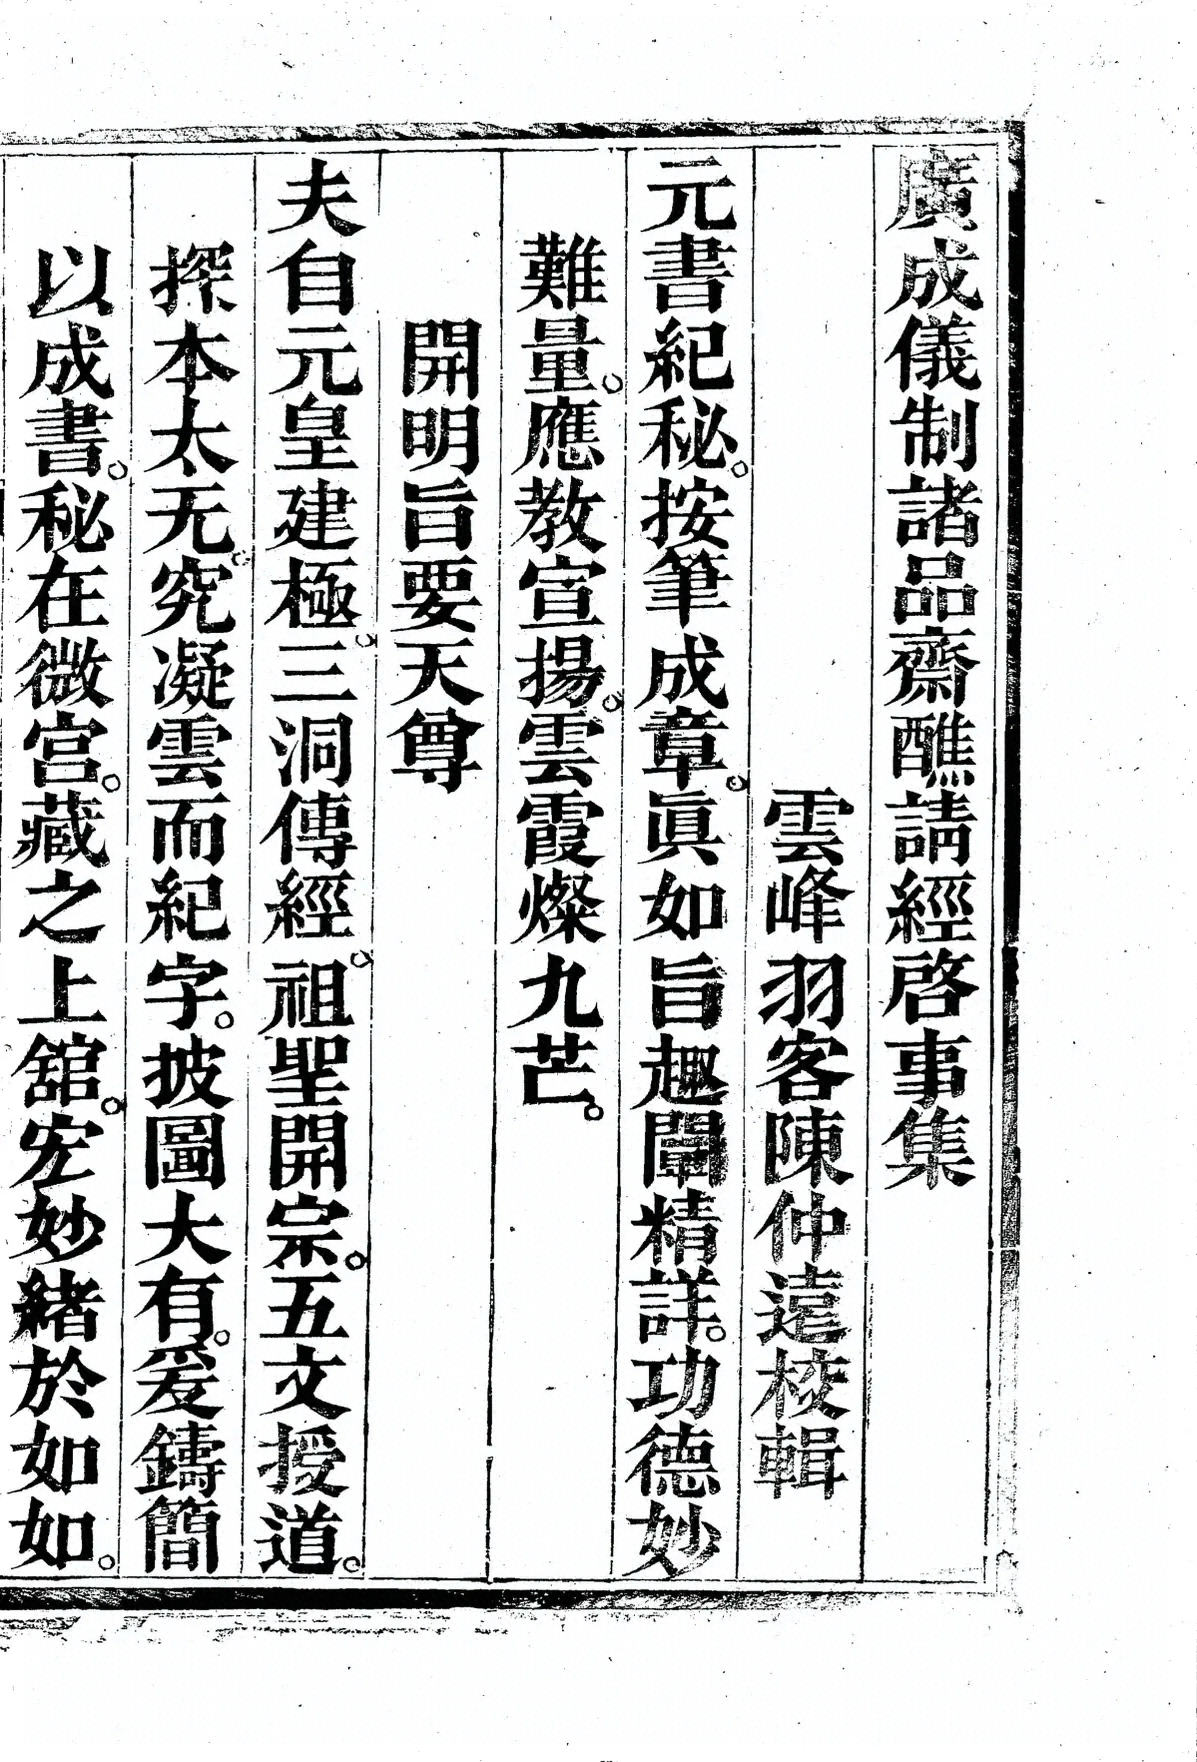 廣成儀制諸品齋醮請經啓事集
雲峰羽客陳仲遠校輯
元書紀秘。按筆成章。眞如旨趣闡精詳。功德妙
難量。應教宣揚。雲霞燦九芒。
開明旨要天尊
夫自元皇建極。三洞傳經。祖聖開宗。五文授道。
探本太无。究凝雲而紀字。披圖大有。爰鑄簡
以成書。秘在微宫。藏之上舘。宏妙緒於如如。